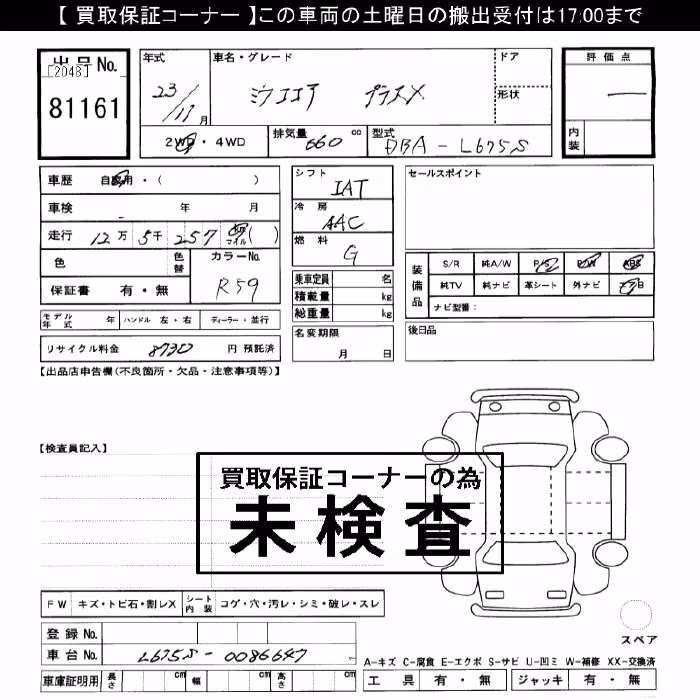 【 買取保証コーナー 】この車両の土曜日の搬出受付は17:00まで
出品No.
[2048]
81161
年式
23/11月
車名・グレード
ミラココア プラスX
ドア
形状
評価点
内装
2WD・4WD
排気量 660 cc
型式 DBA-L675S
車歴 自家用・( )
車検 年 月
走行 12万5千257 km マイル( )
色
色替
カラーNo.
R59
保証書 有・無
モデル年式 年
ハンドル 左・右
ディーラー・並行
リサイクル料金 8730 円 預託済
シフト
IAT
冷房
AAC
燃料
G
乗車定員 名
積載量 kg
総重量 kg
名変期限
月 日
セールスポイント
装備品
S/R 純A/W P/S P/W ABS
純TV 純ナビ 革シート 外ナビ エアB
ナビ型番:
後日品
【出品店申告欄(不良箇所・欠品・注意事項等)】
【検査員記入】
買取保証コーナーの為
未検査
FW キズ・トビ石・割レX
シート内装 コゲ・穴・汚レ・シミ・破レ・スレ
スペア
登録No.
車台No. L675S-0086647
車庫証明用 長さ cm 幅 cm 高さ cm
A-キズ C-腐食 E-エクボ S-サビ U-凹ミ W-補修 XX-交換済
工具 有・無 ジャッキ 有・無